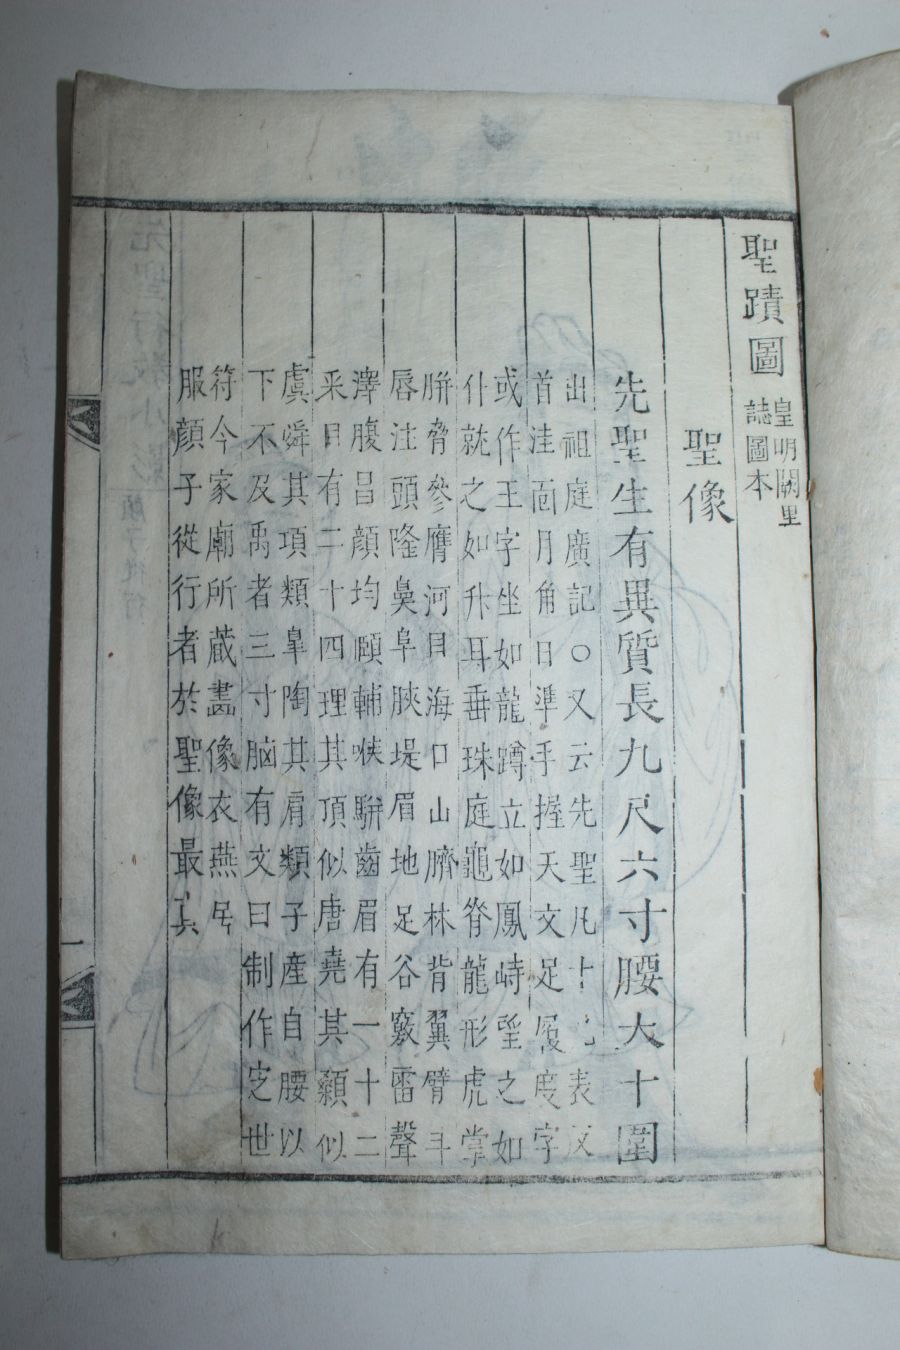 聖蹟圖
皇明闕里
誌圖本
聖像
先聖生有異質長九尺六寸腰大十圍
出祖庭廣記〇又云先聖凡十九表反
首洼面月角日準手握天文足履度字
或作王字坐如龍蹲立如鳳峙望之如
什就之如升耳垂珠庭龜脊龍形虎掌
胼脅參膺河目海口山臍林背翼臂斗
唇注頭隆鼻阜脥堤眉地足谷竅雷聲
澤腹昌顏均頤輔喉駢齒眉有一十二
采目有二十四理其頂似唐堯其顙似
虞舜其項類皐陶其肩類子產自腰以
下不及禹者三寸脑有文曰制作㝎世
符今家廟所蔵畵像衣燕居
服顔子從行者於聖像最真
一